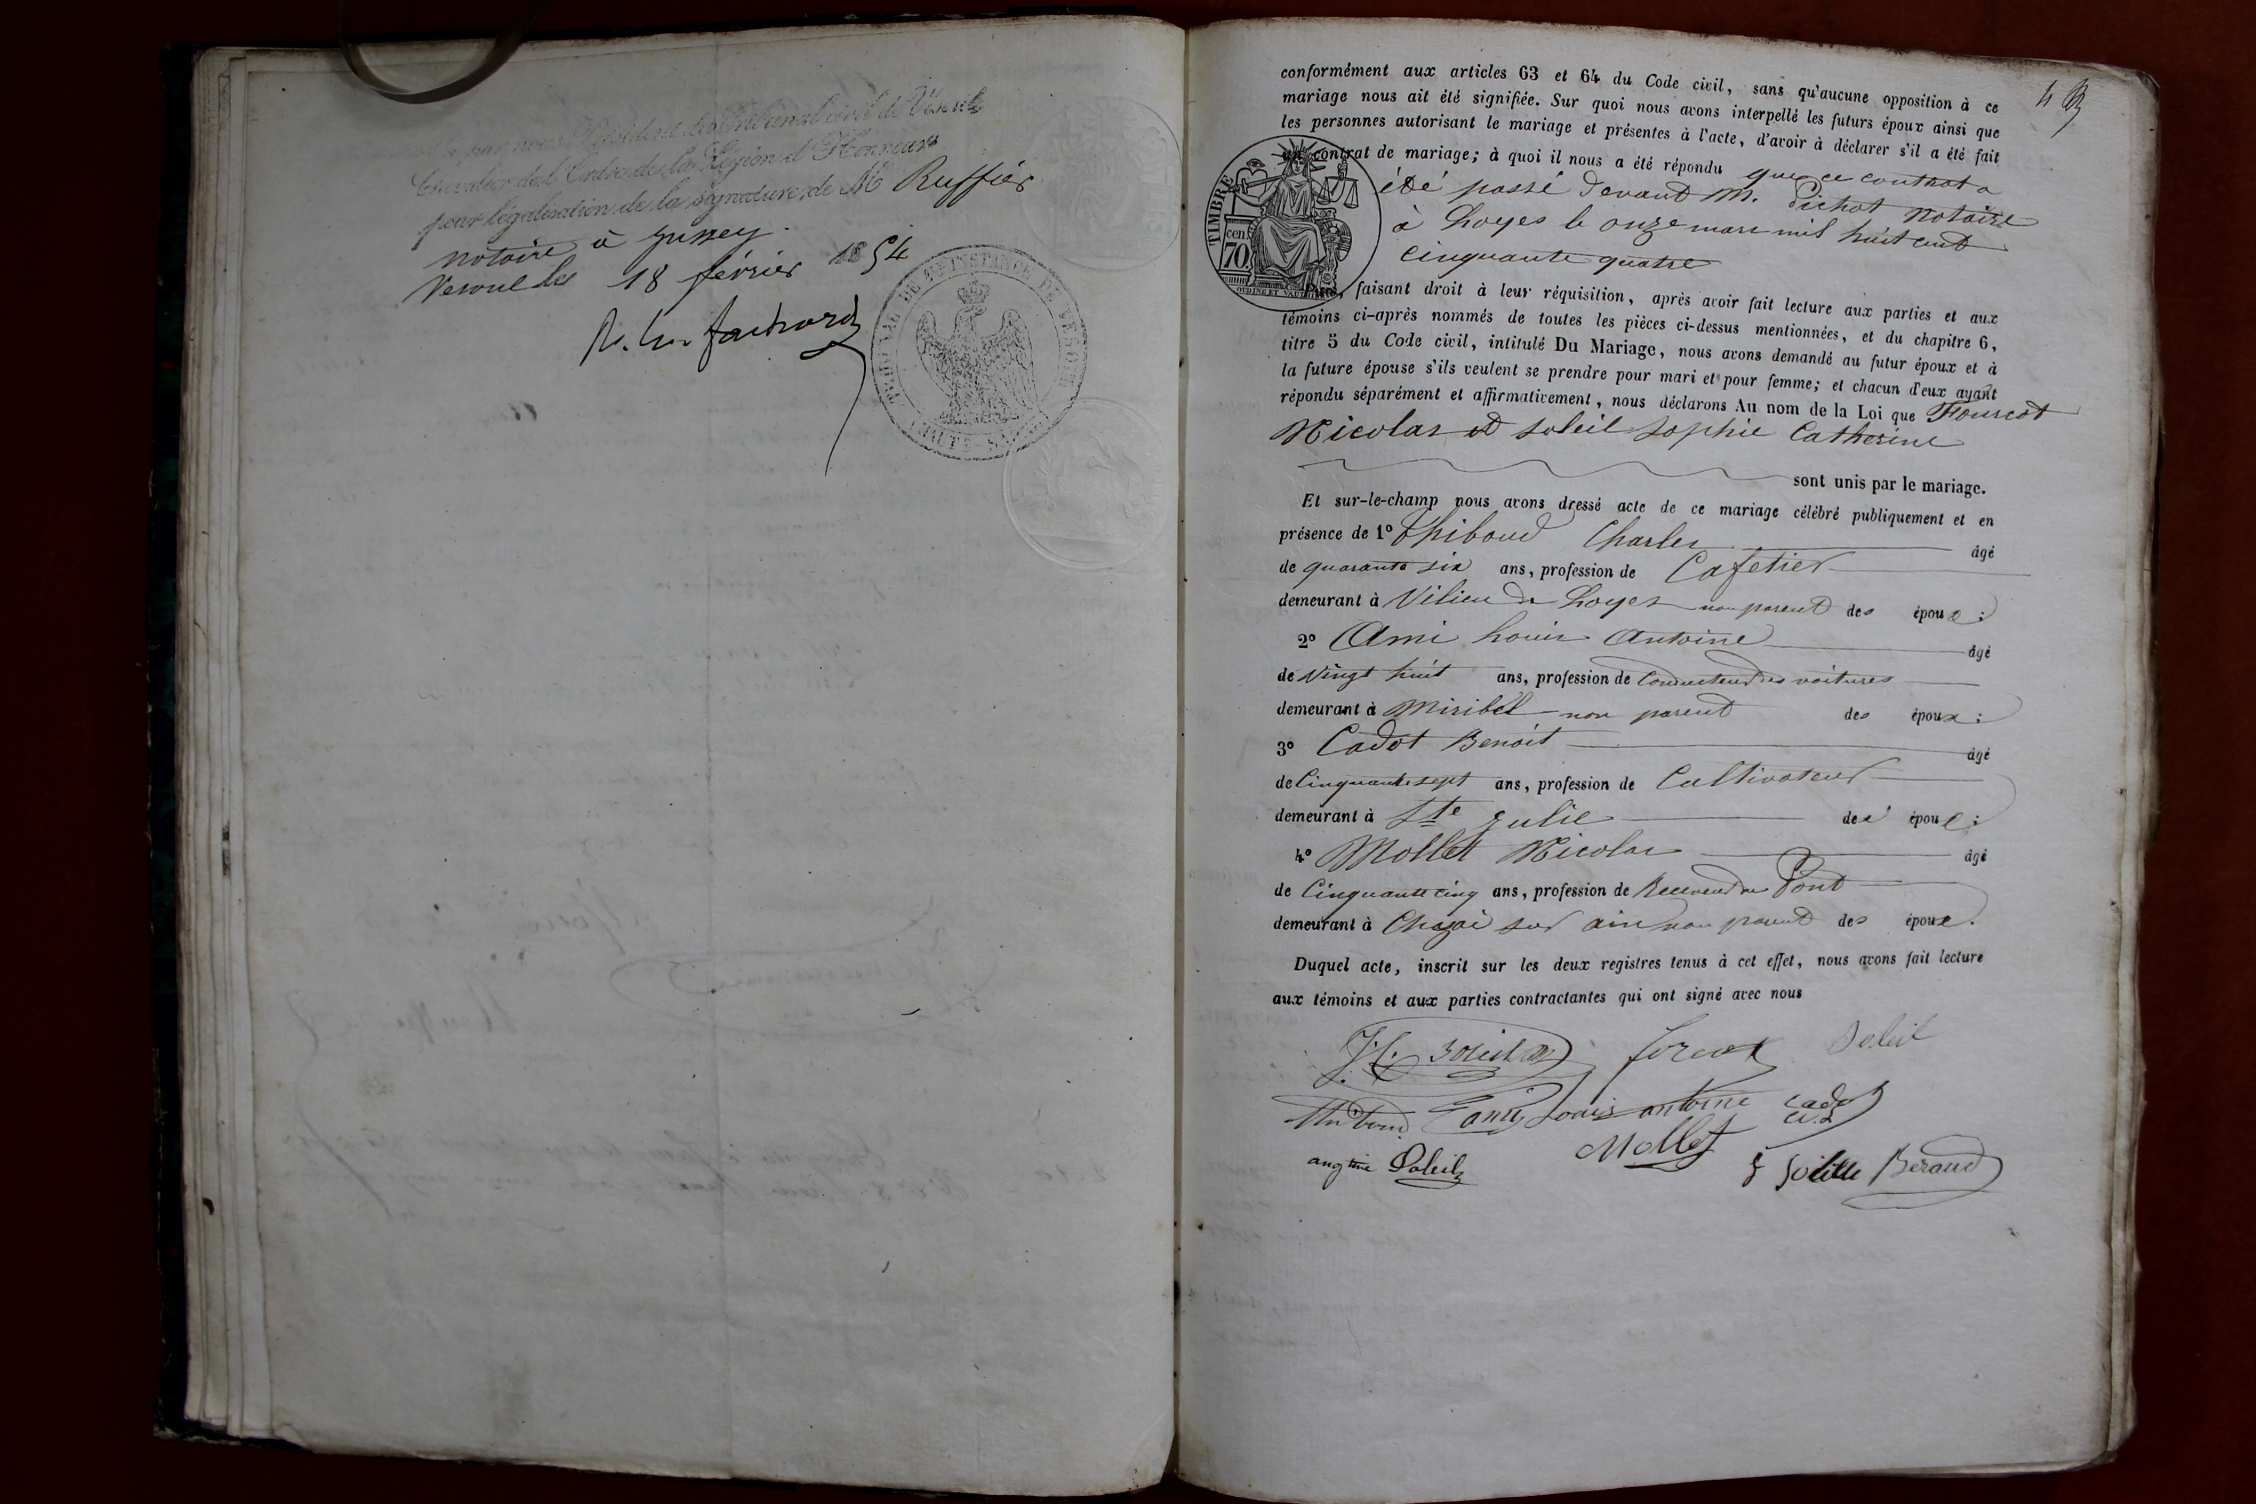 par nous Président du Tribunal civil de Vesoul
Chevalier de l'Ordre de la Légion d'Honneur
pour légalisation de la signature de Mᵉ Ruffier
notaire à Jussey.
Vesoul le 18 février 1854
TRIBUNAL DE 1ERE INSTANCE DE VESOUL
HAUTE-SAÔNE
4
conformément aux articles 63 et 64 du Code civil, sans qu'aucune opposition à ce
mariage nous ait été signifiée. Sur quoi nous avons interpellé les futurs époux ainsi que
les personnes autorisant le mariage et présentes à l'acte, d'avoir à déclarer s'il a été fait
un contrat de mariage; à quoi il nous a été répondu que ce contrat a
été passé devant M. Pichat notaire
à Loyes le onze mars mil huit cent
cinquante quatre
TIMBRE
cen.
70
faisant droit à leur réquisition, après avoir fait lecture aux parties et aux
témoins ci-après nommés de toutes les pièces ci-dessus mentionnées, et du chapitre 6,
titre 5 du Code civil, intitulé Du Mariage, nous avons demandé au futur époux et à
la future épouse s'ils veulent se prendre pour mari et pour femme; et chacun d'eux ayant
répondu séparément et affirmativement, nous déclarons Au nom de la Loi que Fourcot
Nicolas et Soleil Sophie Catherine
sont unis par le mariage.
Et sur-le-champ nous avons dressé acte de ce mariage célébré publiquement et en
présence de 1º Thiboud Charles âgé
de quarante six ans, profession de Cafetier
demeurant à Vilieu de Loyes non parent des époux:
2º Ami Louis Antoine âgé
de vingt huit ans, profession de Conducteur des voitures
demeurant à Miribel non parent des époux:
3º Cadot Benoit âgé
de Cinquante sept ans, profession de Cultivateur
demeurant à Ste Julie des époux:
4º Mollet Nicolas âgé
de Cinquante cinq ans, profession de Receveur du Pont
demeurant à Chazai sur ain non parent des époux.
Duquel acte, inscrit sur les deux registres tenus à cet effet, nous avons fait lecture
aux témoins et aux parties contractantes qui ont signé avec nous
Soleil
Thiboud ami Louis antoine cadot
Mollet
Soleil Béraud